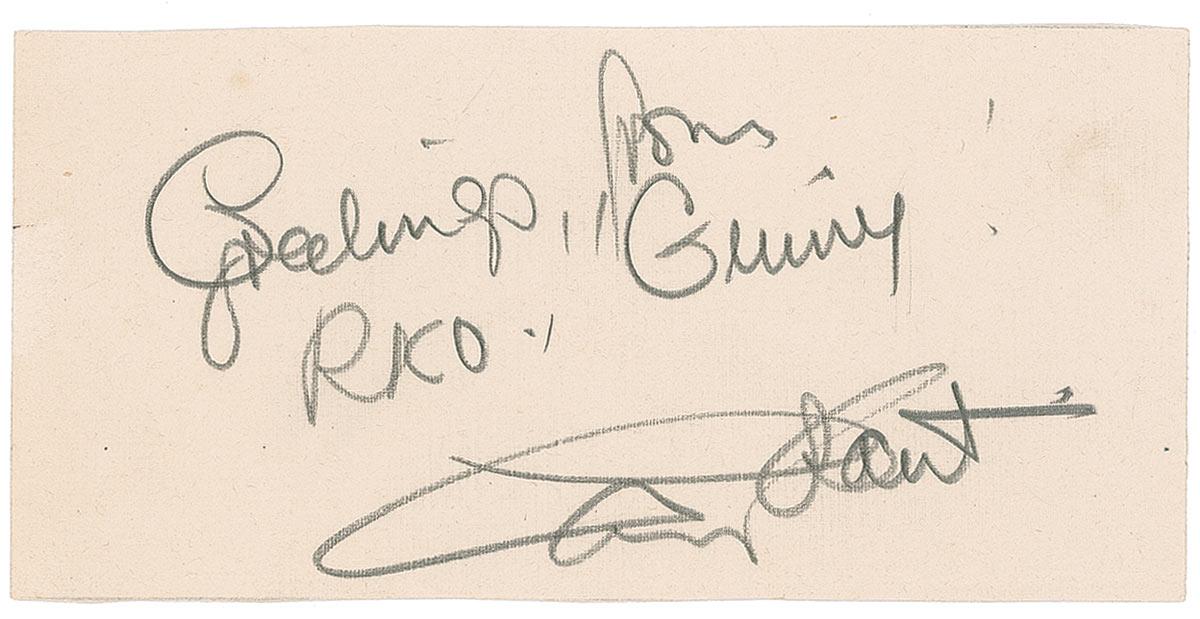 Greetings, from
RKO.
Cary Grant